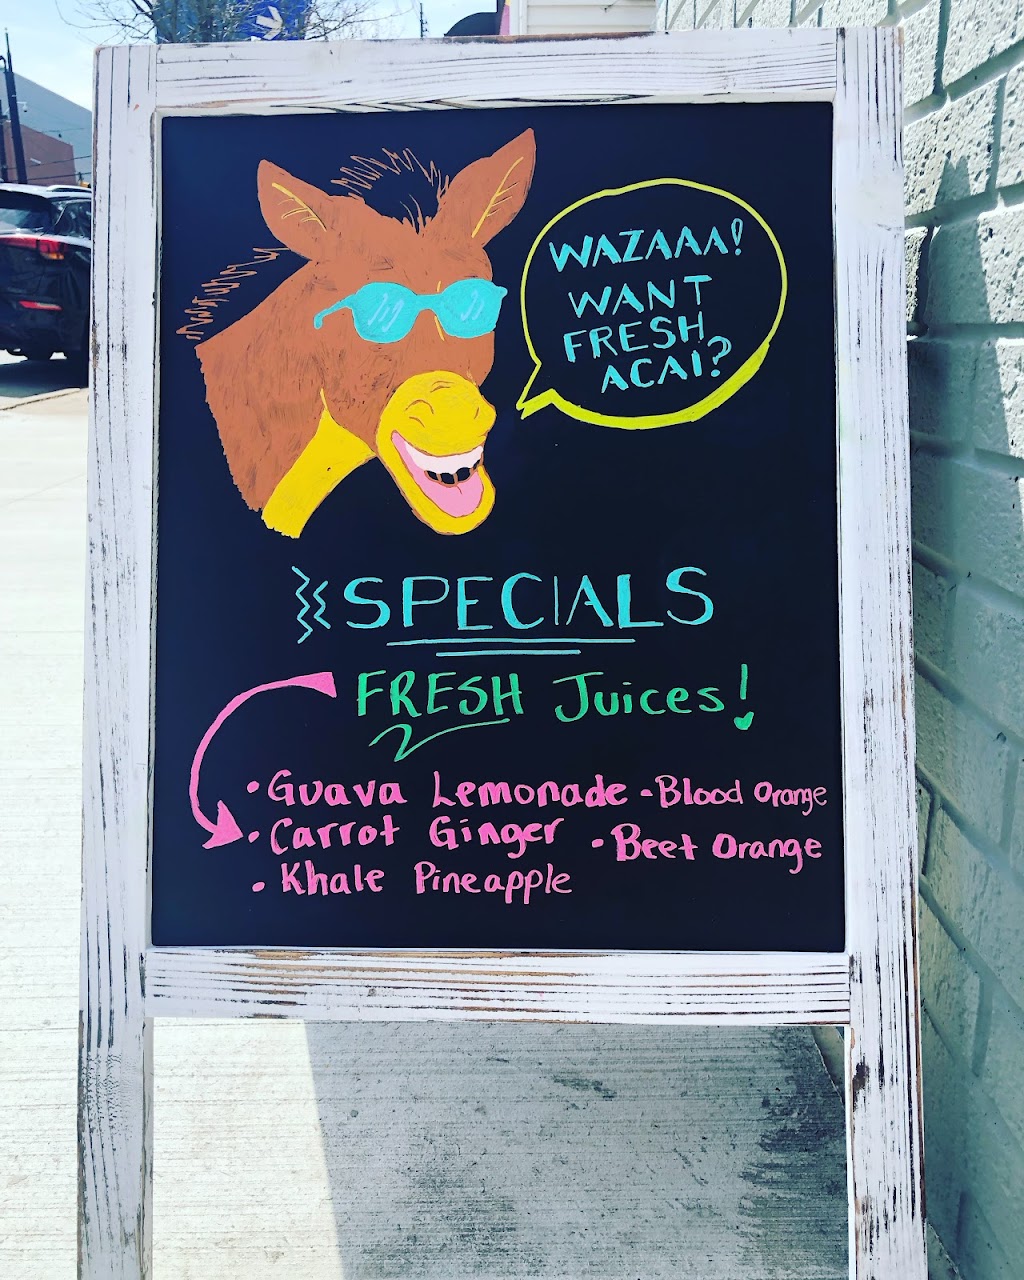 WAZAAA!
WANT
FRESH
ACAI?
SPECIALS
FRESH Juices!
• Guava Lemonade
• Carrot Ginger
• Khale Pineapple
• Blood Orange
• Beet Orange